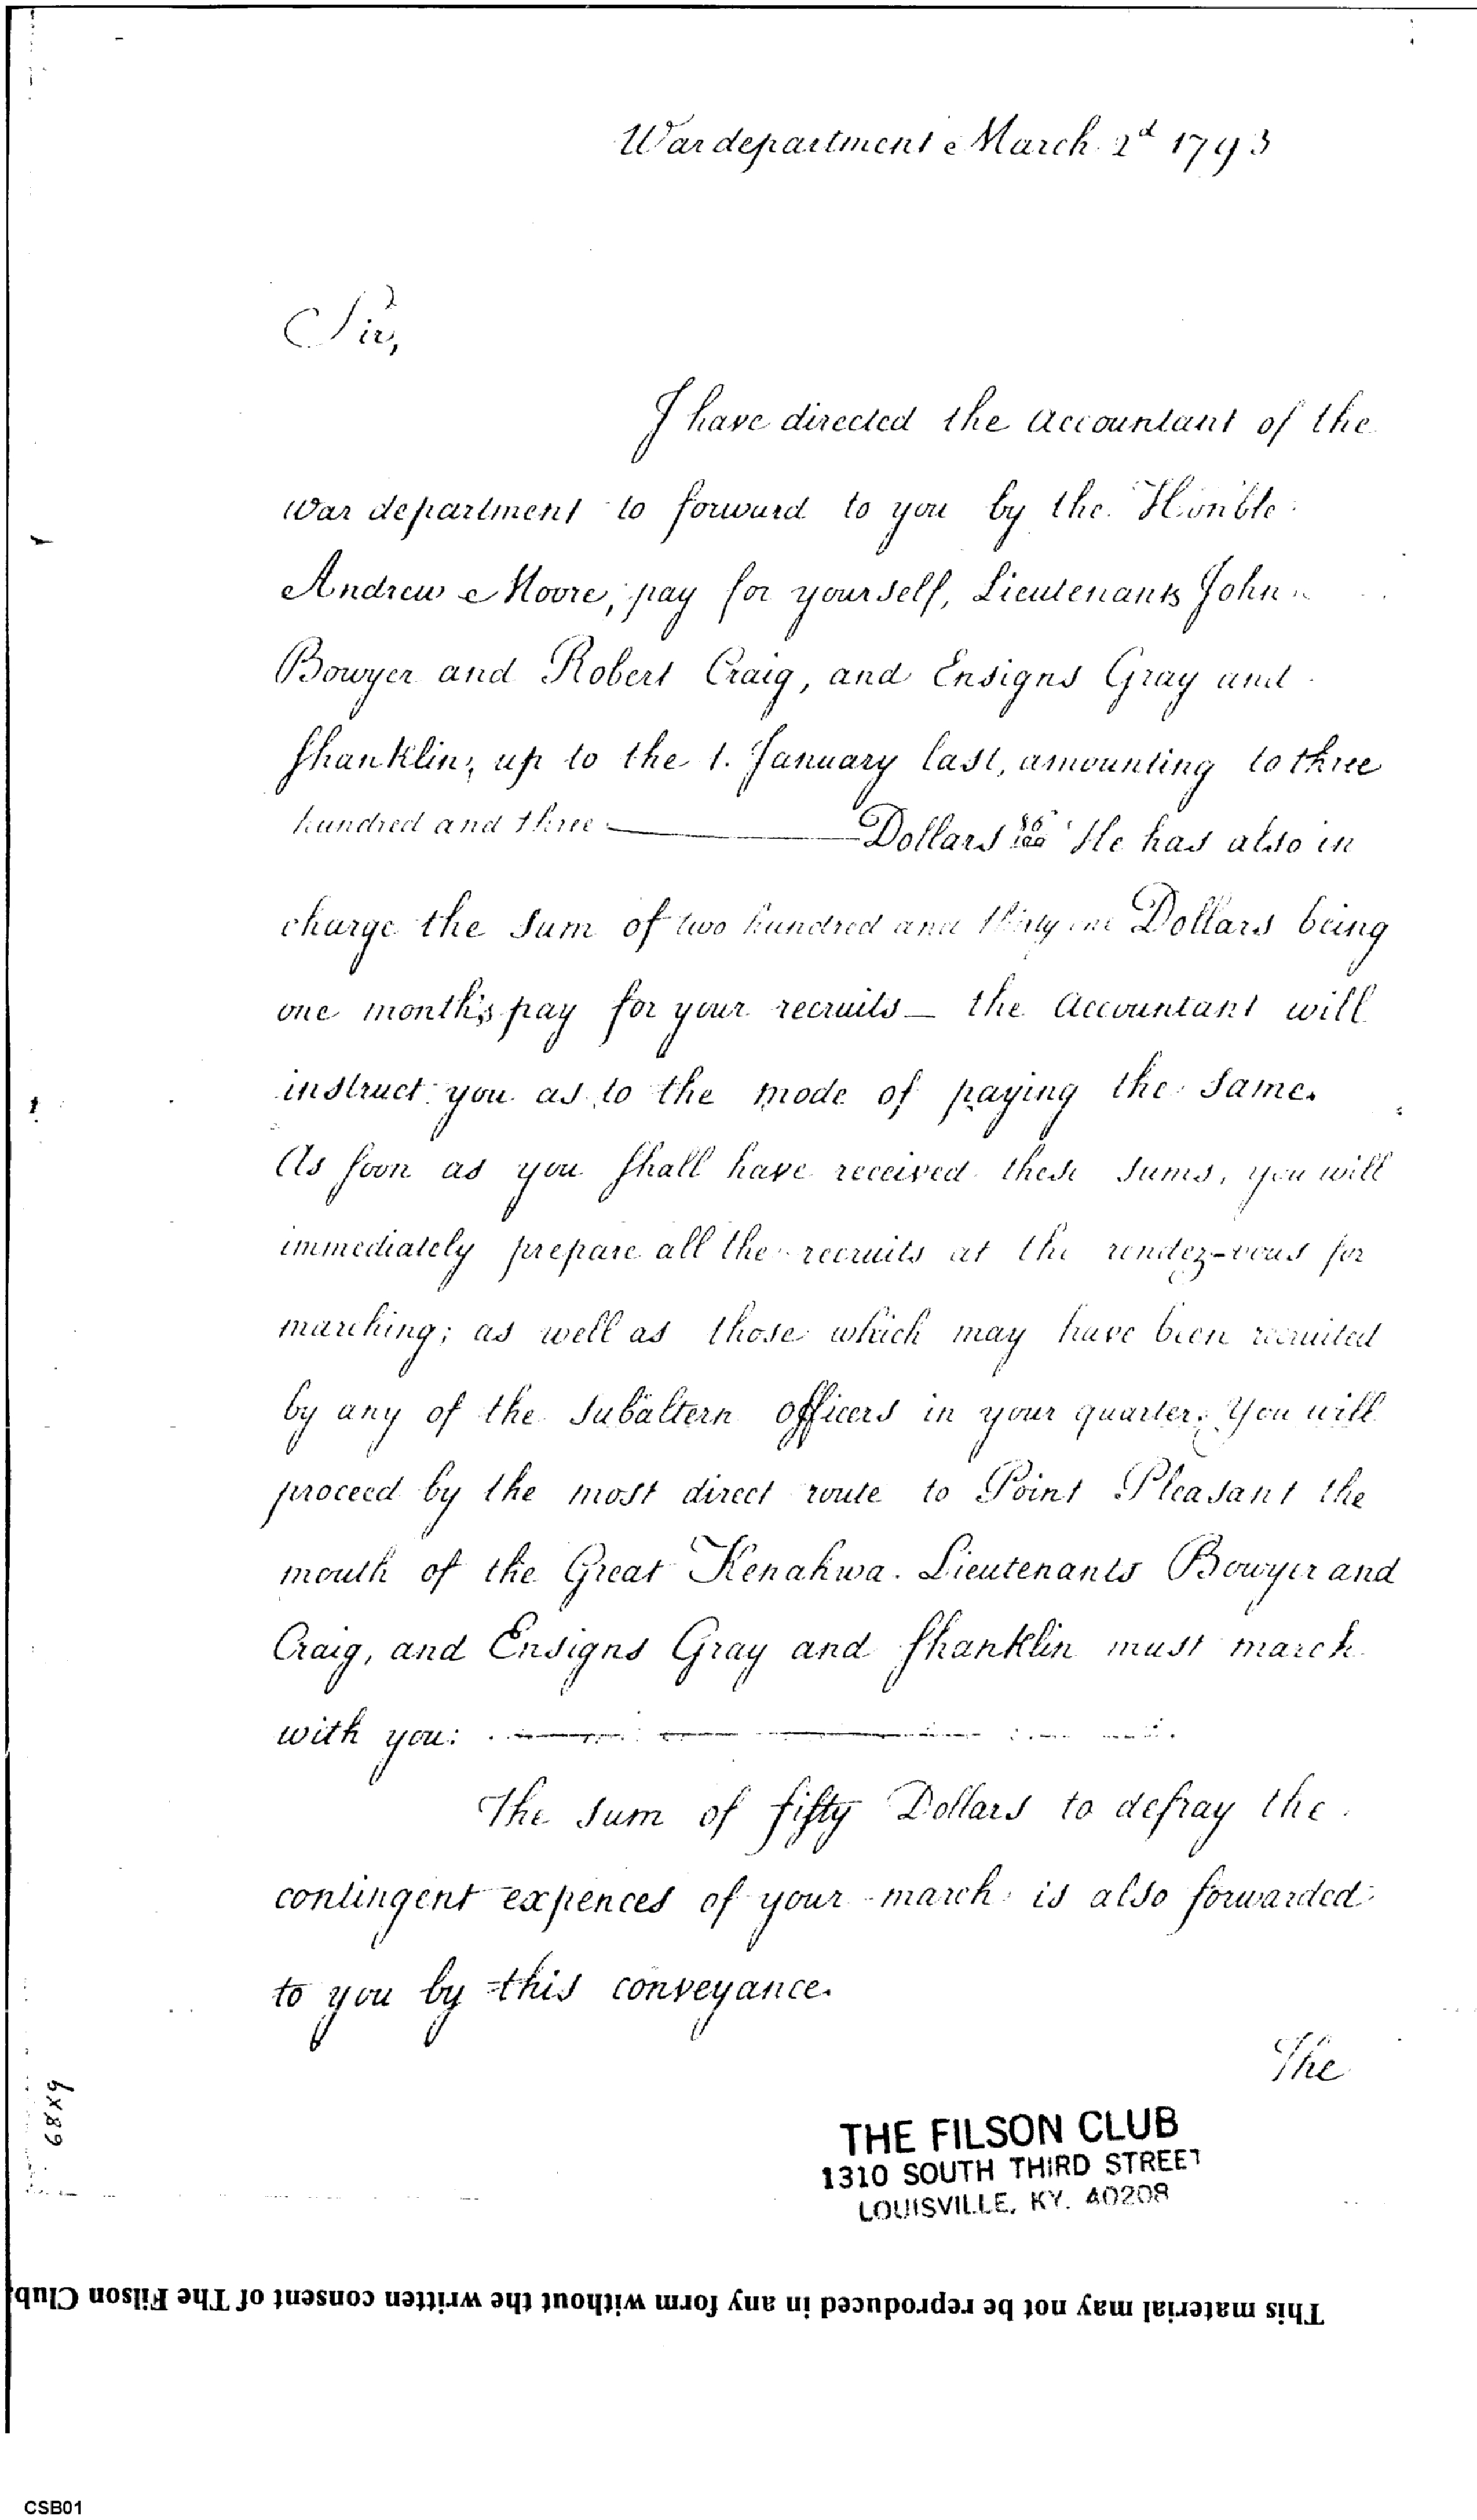 War department March 2d 1793
Sir,
I have directed the Accountant of the
war department to forward to you by the Honble
Andrew Moore, pay for yourself, Lieutenants John
Bowyer and Robert Craig, and Ensigns Gray and
Shanklin, up to the 1. January last, amounting to three
hundred and three Dollars 86/100 He has also in
charge the sum of two hundred and thirty one Dollars being
one month's pay for your recruits — the Accountant will
instruct you as to the mode of paying the same.
As soon as you shall have received these sums, you will
immediately prepare all the recruits at the rendez-vous for
marching; as well as those which may have been recruited
by any of the subaltern officers in your quarter. You will
proceed by the most direct route to Point Pleasant the
mouth of the Great Kenahwa. Lieutenants Bowyer and
Craig, and Ensigns Gray and Shanklin must march
with you:
The sum of fifty Dollars to defray the
contingent expences of your march is also forwarded
to you by this conveyance.
The
THE FILSON CLUB
1310 SOUTH THIRD STREET
LOUISVILLE, KY. 40208
This material may not be reproduced in any form without the written consent of The Filson Club.
CSB01